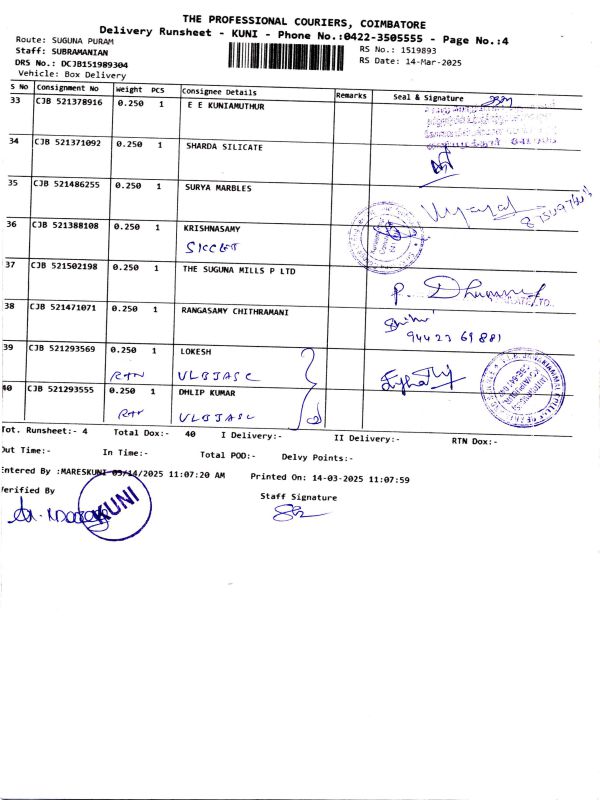 THE PROFESSIONAL COURIERS, COIMBATORE
Delivery Runsheet - KUNI - Phone No.:0422-3505555 - Page No.:4
Route: SUGUNA PURAM
RS No.: 1519893
Staff: SUBRAMANIAN
RS Date: 14-Mar-2025
DRS No.: DCJB151989304
Vehicle: Box Delivery
S No Consignment No Weight PCS Consignee Details Remarks Seal & Signature
33 CJB 521378916 0.250 1 E E KUNIAMUTHUR
34 CJB 521371092 0.250 1 SHARDA SILICATE
35 CJB 521486255 0.250 1 SURYA MARBLES
36 CJB 521388108 0.250 1 KRISHNASAMY
37 CJB 521502198 0.250 1 THE SUGUNA MILLS P LTD
38 CJB 521471071 0.250 1 RANGASAMY CHITHRAMANI
94423 69881
39 CJB 521293569 0.250 1 LOKESH
RTN VLBJASC
40 CJB 521293555 0.250 1 DHLIP KUMAR
VLBJASC
Tot. Runsheet:- 4 Total Dox:- 40 I Delivery:- II Delivery:- RTN Dox:-
Out Time:- In Time:- Total POD:- Delvy Points:-
Entered By :MARESKUNI 03/14/2025 11:07:20 AM Printed On: 14-03-2025 11:07:59
Verified By
Staff Signature
KUNI